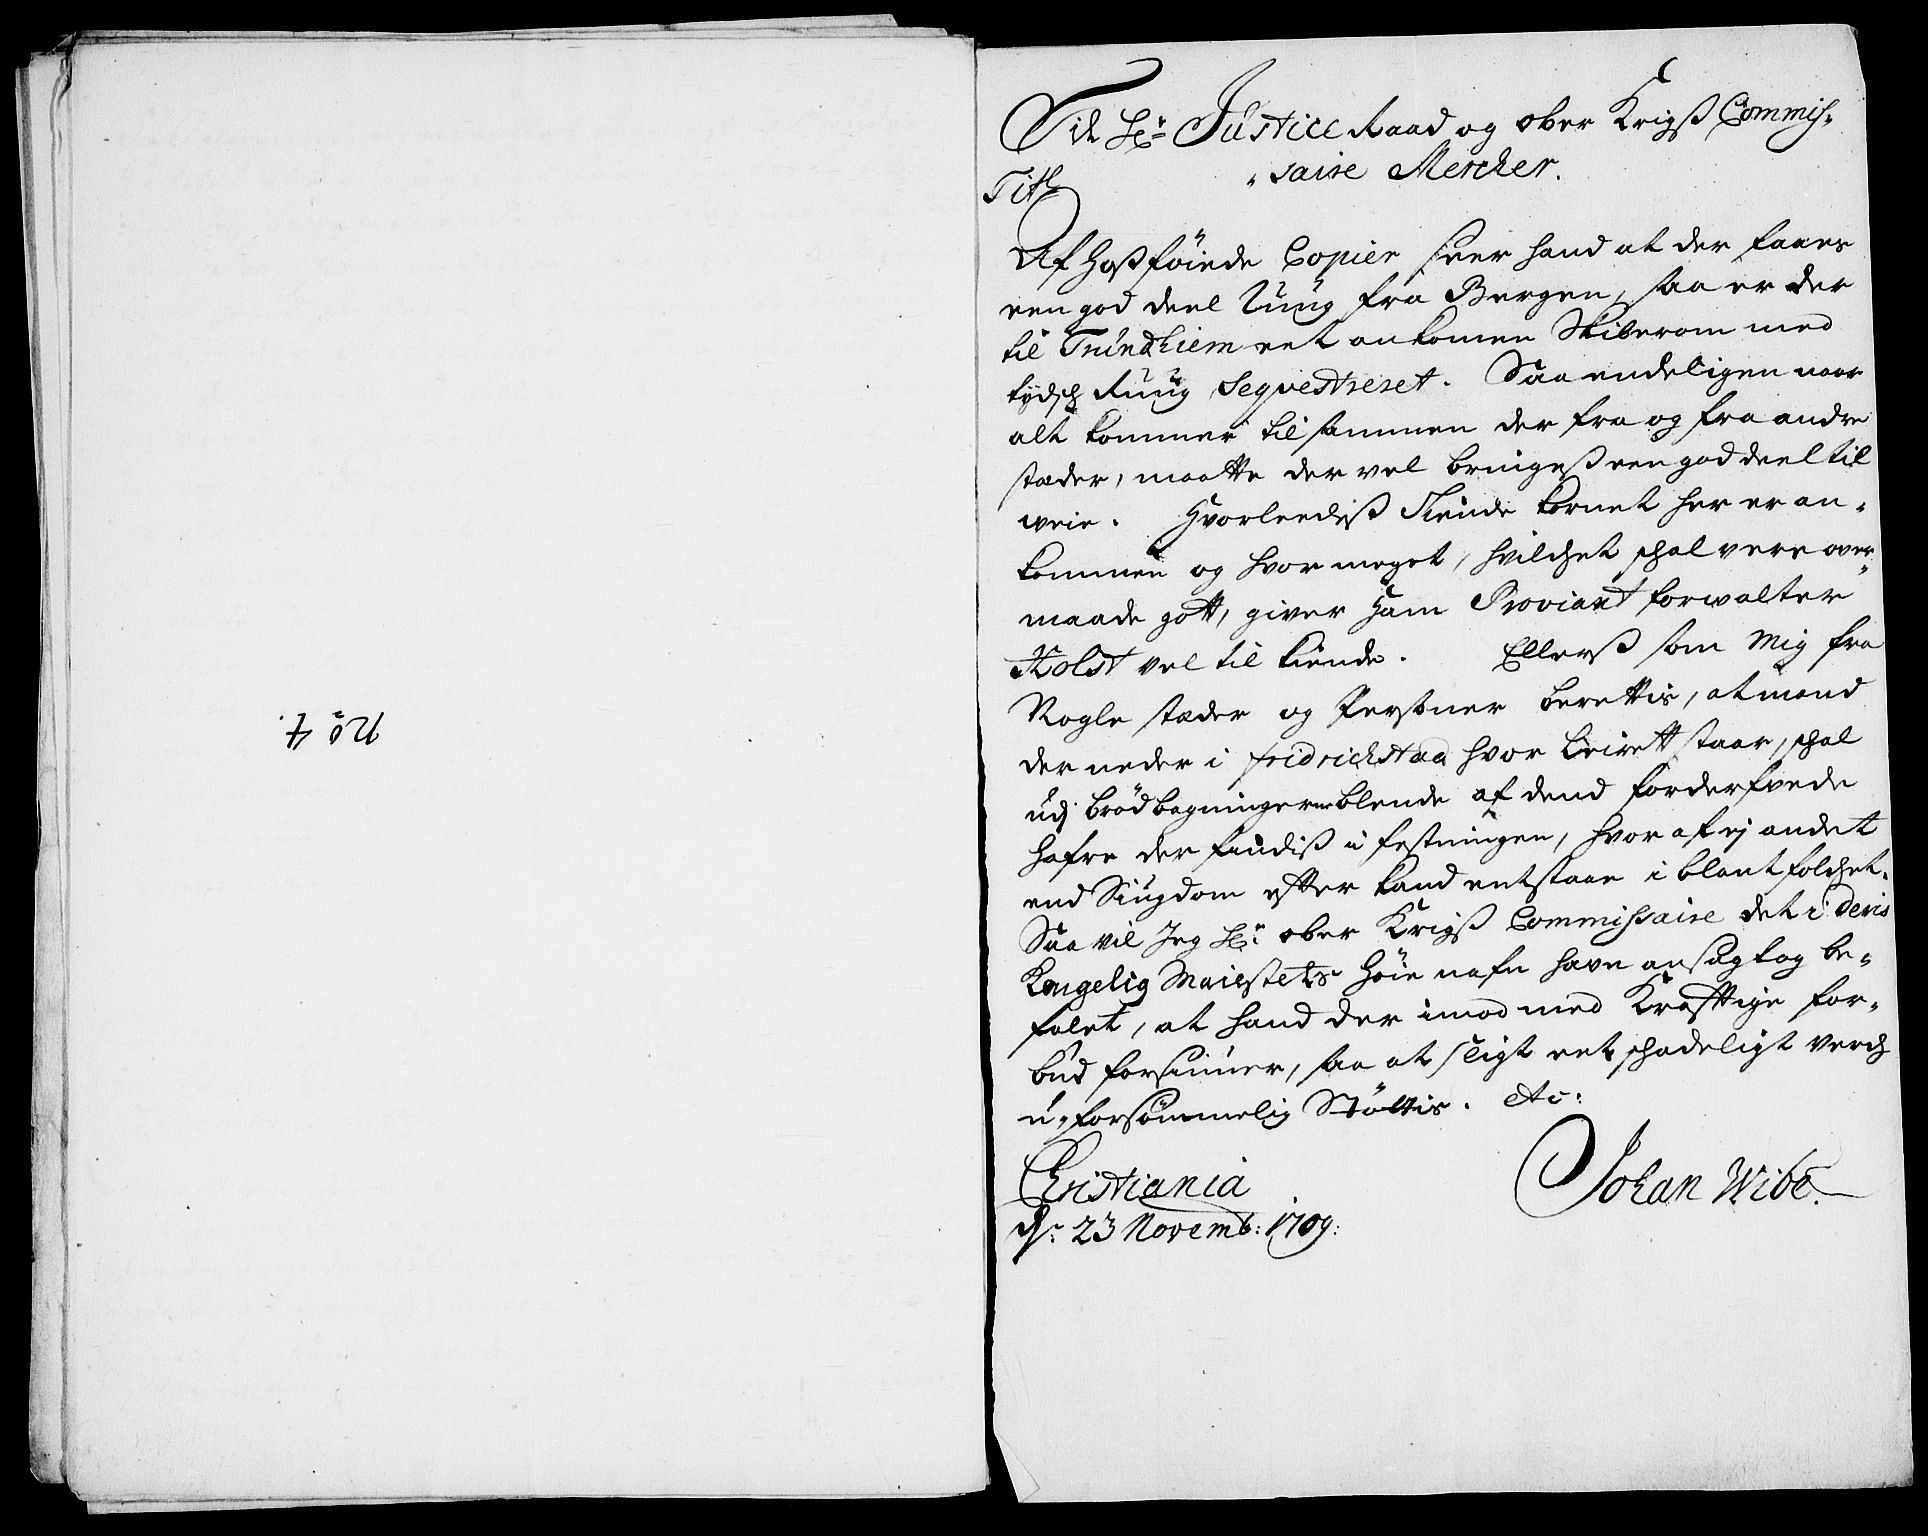 No 4.
Til Hr Justice Raad og ober Krigß Commis-
saire Mercker.
Titl
Af hoßføiede Copier seer hand at der faaes
een god deel Rúúg fra Bergen, saa er der
til Trúndhiem eet ankomen Skiberom med
tydsch Rúúg Seqvestreret. Saa endeligen naar
alt kommer til sammen der fra og fra andre
stæder, maatte der vel bringeß een god deel til
weie. Hvorleediß Tiende kornet her er an-
kommen og hvor meget, hvilchet schal vere over-
maade gott, giver Ham Proviant forwalter
Holst vel til kiende. Ellerß som mig fra
Nogle stæder og Persohner berettis, at mand
der neder i fridrichstad hvor Leirett staar, schal
udj brødbagninger blende af dend forderfvede
hafre der findiß i festningen, hvor af ej andet
end Siugdom efter kand entstaae i blant folchet.
Saa vil Jeg Hr ober Krigß Commissaire det i Deris
Kongelig Maiestets høie nafn have ansagt og be-
falet, at hand der imod med Kraftige for-
bud forsiuner, saa at sligt eet schadeligt verch
u-forsømmelig Støttis. etc:
Christiania
dn: 23 Novemb: 1709:
Johan Wibe.